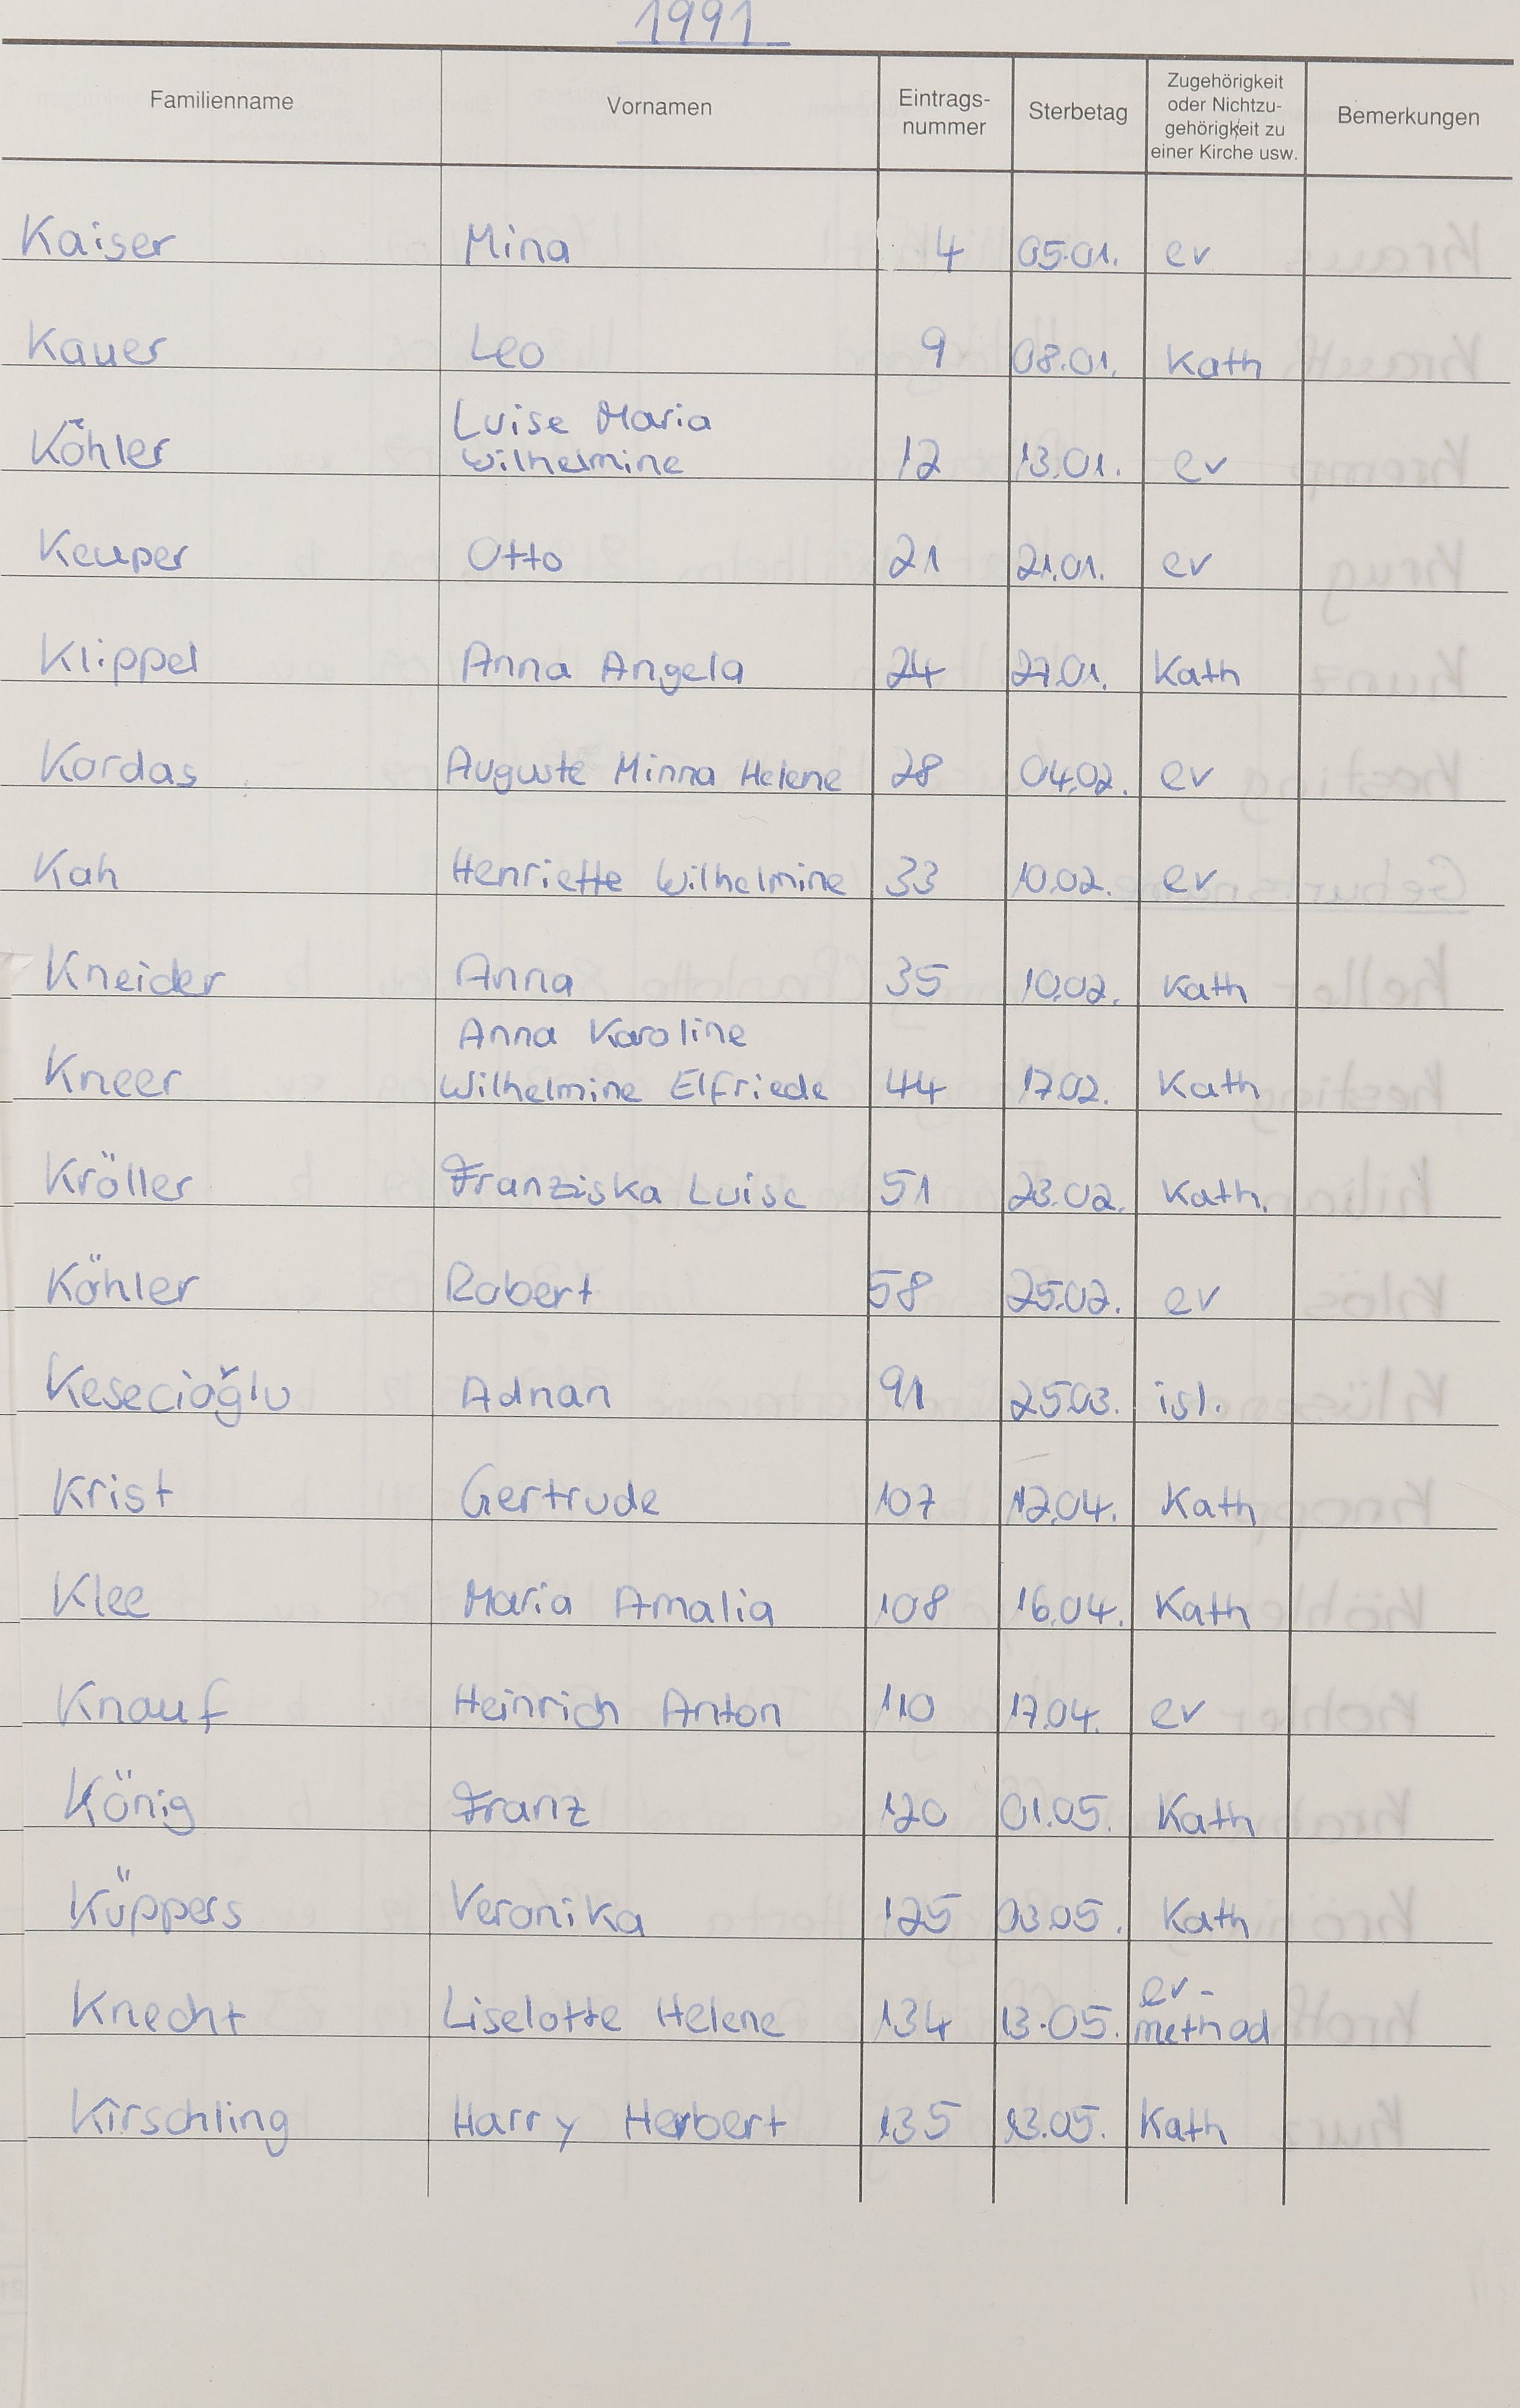 1991
Familienname Vornamen Eintrags-nummer Sterbetag Zugehörigkeit oder Nichtzu-gehörigkeit zu einer Kirche usw. Bemerkungen
Kaiser Mina 4 05.01. ev
Kauer Leo 9 08.01. Kath
Köhler Luise Maria Wilhelmine 12 13.01. ev
Keuper Otto 21 21.01. ev
Klippel Anna Angela 24 27.01. Kath
Kordas Auguste Minna Helene 28 04.02. ev
Kah Henriette Wilhelmine 33 10.02. ev
Kneider Anna 35 10.02. Kath
Kneer Anna Karoline Wilhelmine Elfriede 44 17.02. Kath
Kröller Franziska Luise 51 23.02. Kath.
Köhler Robert 58 25.02. ev
Kesecioğlu Adnan 91 25.03. isl.
Krist Gertrude 107 12.04. Kath
Klee Maria Amalia 108 16.04. Kath
Knauf Heinrich Anton 110 17.04. ev
König Franz 120 01.05. Kath
Küppers Veronika 125 03.05. Kath
Knecht Liselotte Helene 134 13.05. ev-method
Kirschling Harry Herbert 135 13.05. Kath